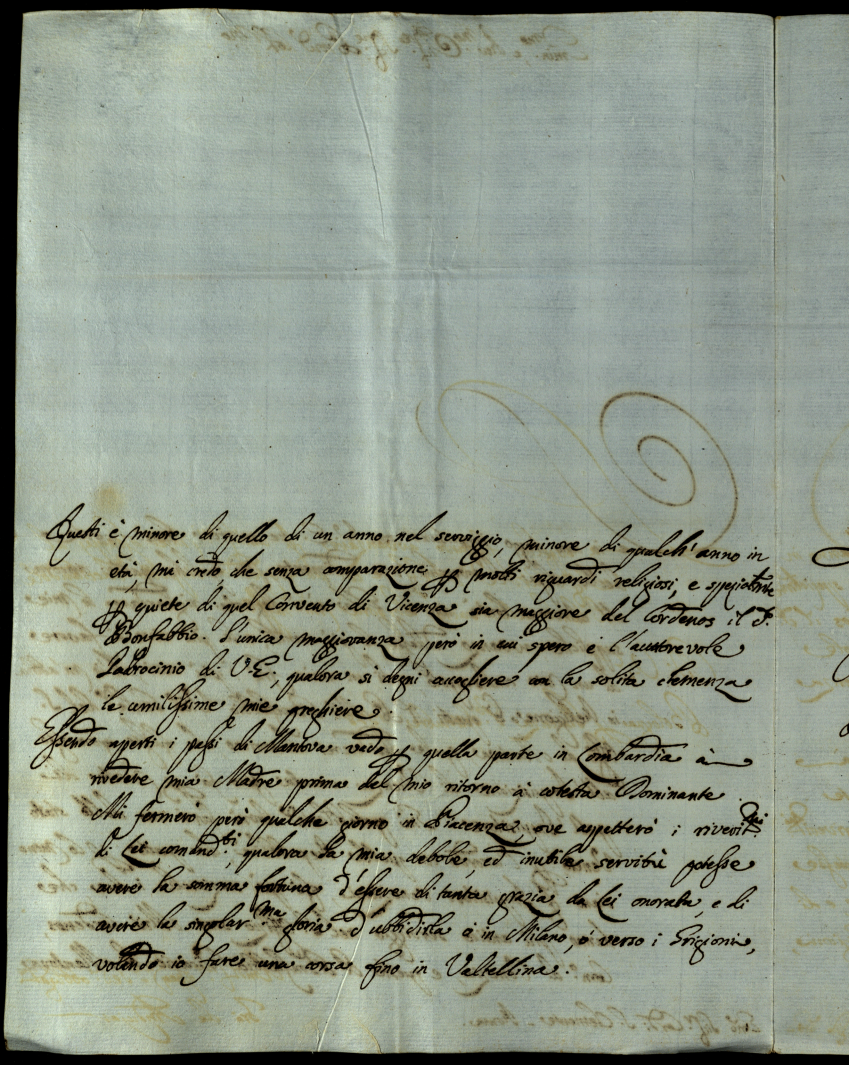 Questi è minore di quello di un anno nel servigio, minore di qualch' anno in
età, mi credo che senza comparazione p molti riguardi religiosi, e spezialmte
p quiete di quel Convento di Vicenza sia maggiore del Cordenos il P.
Bonfabbio. L'unica maggioranza però in cui spero è l'autorevole
Patrocinio di V.E., qualora si degni accogliere con la solita clemenza
le umilissime mie preghiere.
Essendo aperti i passi di Mantova vado p quella parte in Lombardia à
rivedere mia Madre prima del mio ritorno à cotesta Dominante.
Mi fermerò però qualche giorno in Piacenza, ove aspetterò i riveritmi
di Lei comandti, qualora la mia debole, ed inutile servitù potesse
avere la somma fortuna d'essere di tanta grazia da Lei onorata, e di
avere la singolarma gloria d'ubbidirla ò in Milano, ò verso i Grigioni,
volando io fare una corsa fino in Valtellina.